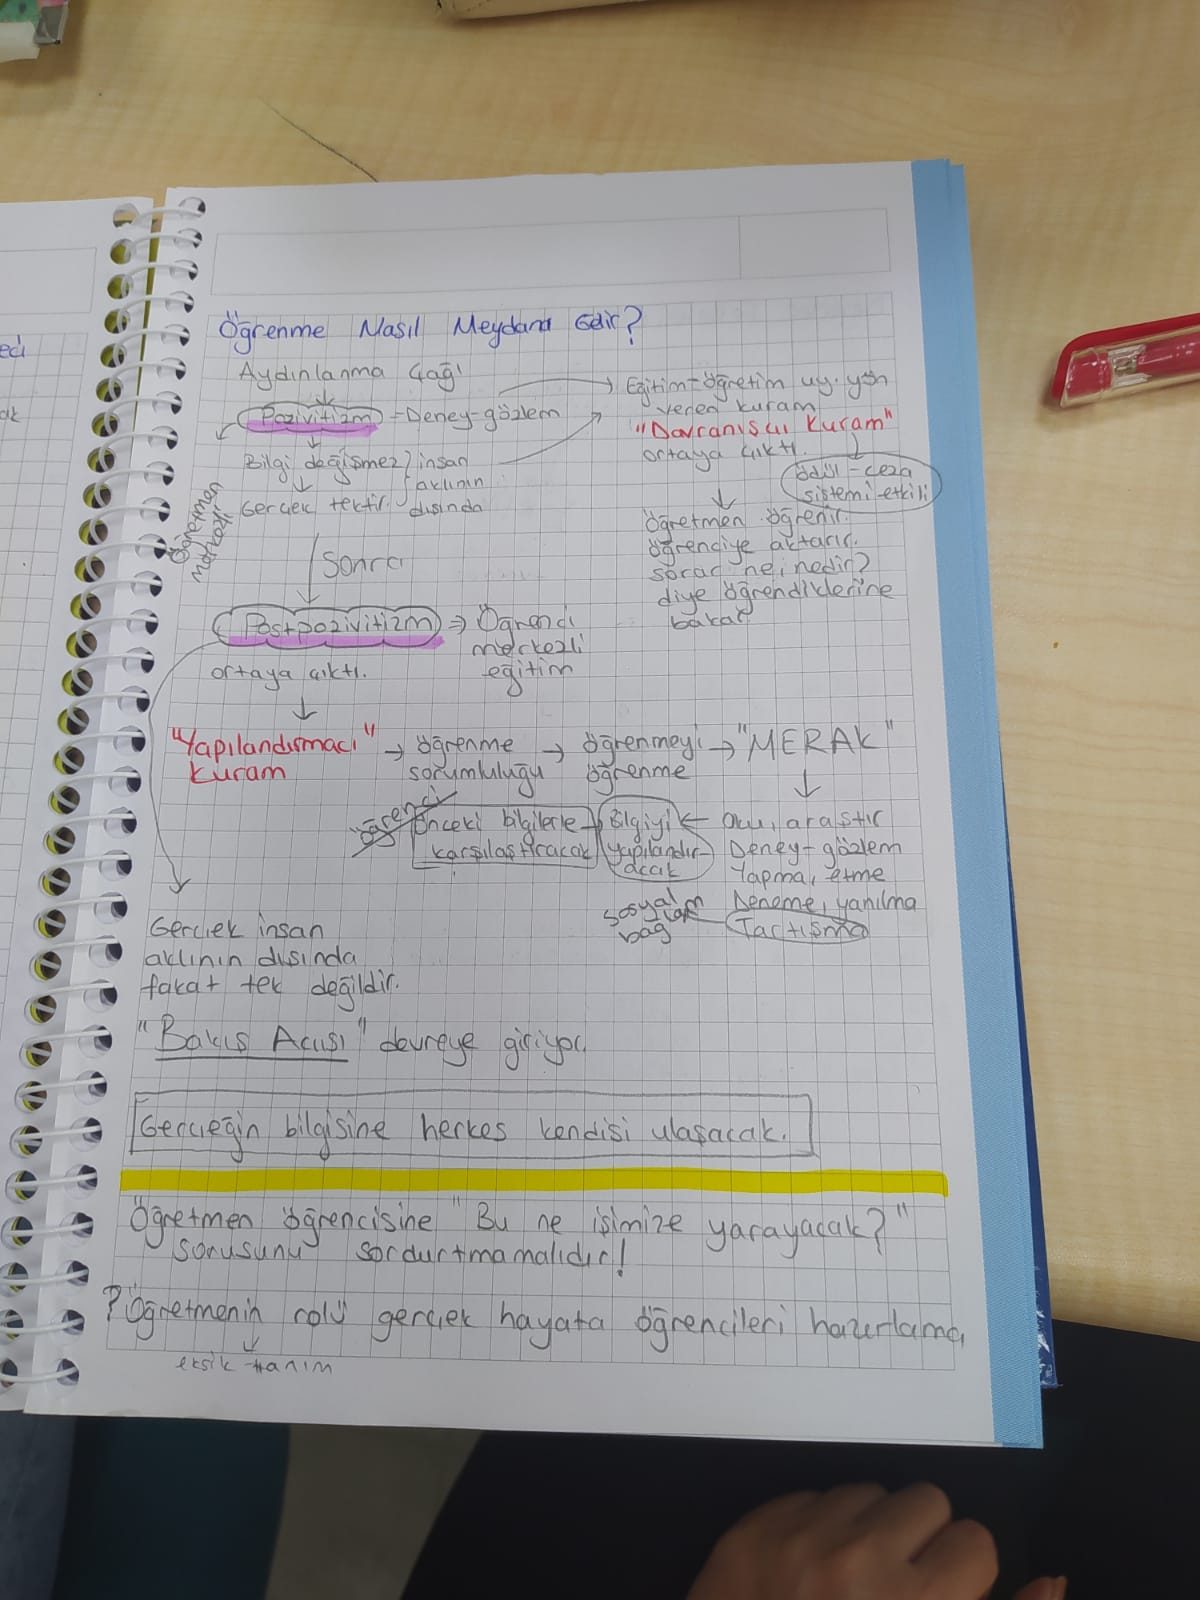 Öğrenme Nasıl Meydana Gelir?
Aydınlanma Çağı
Pozivitizm = Deney-gözlem
Bilgi değişmez
Gerçek tektir.
insan
aklının
dışında
Öğretmen
merkezli
Eğitim-öğretim uy. yön
veren kuram
"Davranışçı Kuram"
ortaya çıktı.
ödül-ceza
sistemi etkili
Öğretmen öğrenir.
öğrenciye aktarır.
sorar ne, nedir?
diye öğrendiklerine
bakar
Sonra
Postpozivitizm => Öğrenci
merkezli
eğitim
ortaya çıktı.
"Yapılandırmacı"
kuram
→ öğrenme
sorumluluğu
→ öğrenmeyi
öğrenme
→ "MERAK"
Oku, araştır
Deney-gözlem
Yapma, etme
Deneme, yanılma
Tartışma
sosyal
bağ
Bilgiyi
yapılandır-
acak
öğrenci
Önceki bilgilerle
karşılaştıracak
Gerçek insan
aklının dışında
fakat tek değildir.
"Bakış Açısı" devreye giriyor.
Gerçeğin bilgisine herkes kendisi ulaşacak.
Öğretmen öğrencisine "Bu ne işimize yarayacak?"
sorusunu sordurtmamalıdır!
? Öğretmenin rolü gerçek hayata öğrencileri hazırlama,
eksik tanım